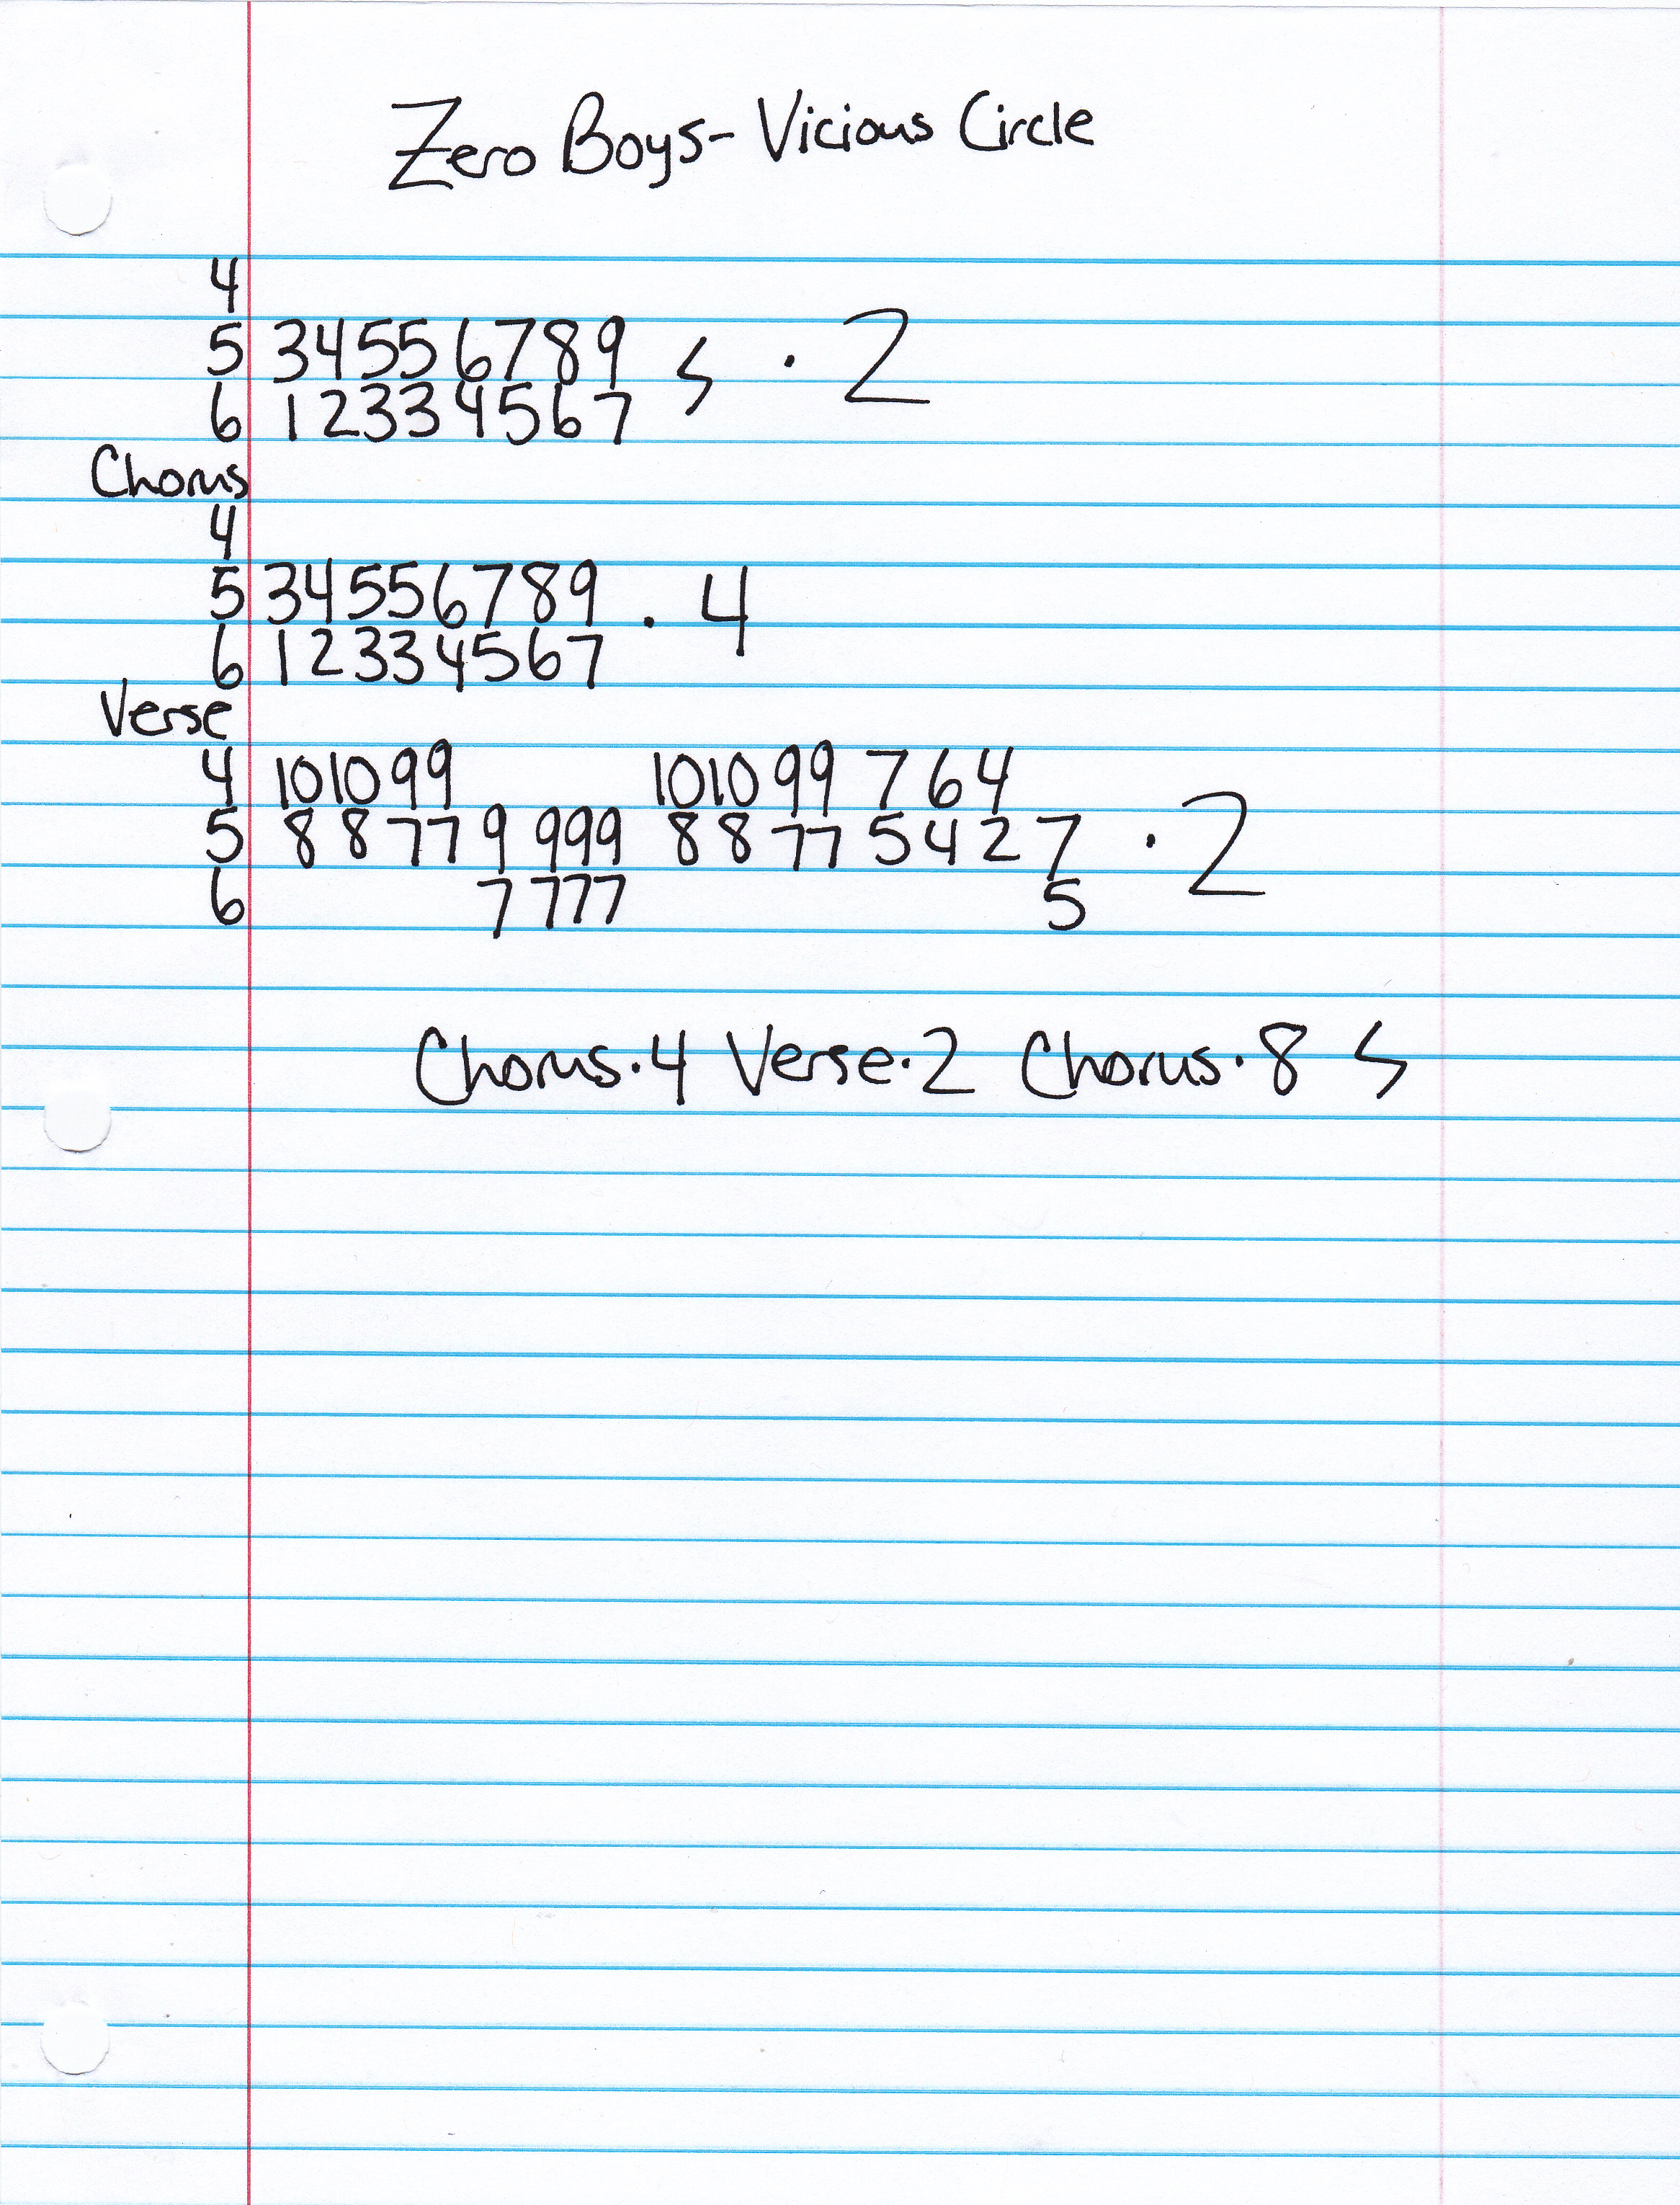 Zero Boys- Vicious Circle
4
5 34556789 · 2
6 12334567
Chorus
4
5 34556789 . 4
6 12334567
Verse
4 10 10 99 10 10 99 7 6 4
5 8 8 77 9 999 8 8 77 5 4 2 7 · 2
6 7 777 5
Chorus·4 Verse·2 Chorus·8